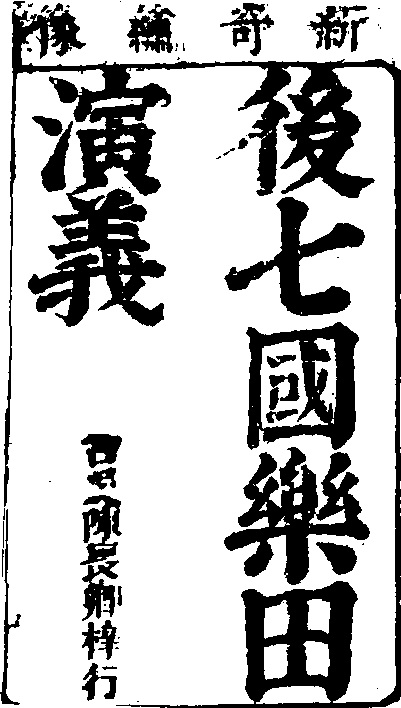 新奇繡像
後七國樂田
演義
古吳陳長卿梓行